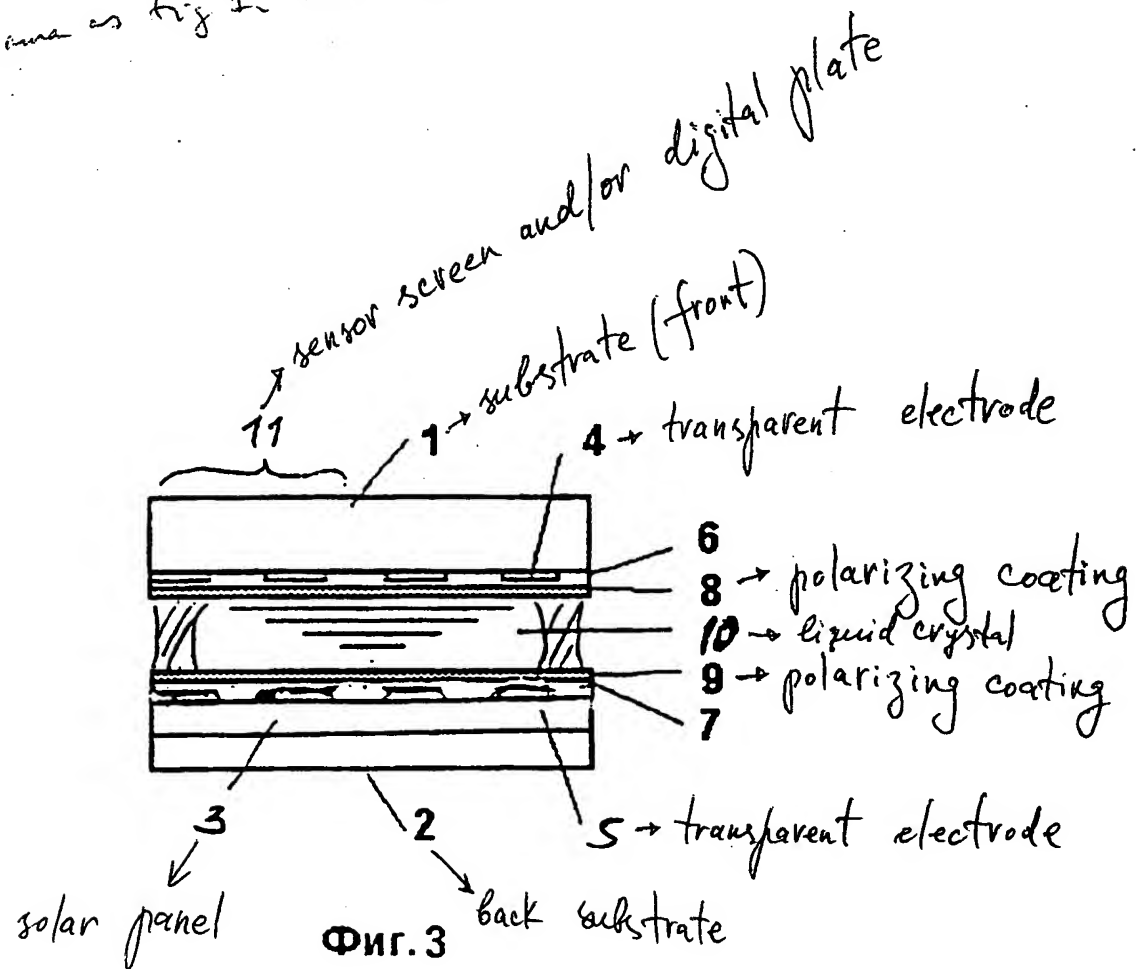 as fig
11 → sensor screen and/or digital plate
1 → substrate (front)
4 → transparent electrode
6
8 → polarizing coating
10 → liquid crystal
9 → polarizing coating
7
3
solar panel
2
back substrate
5 → transparent electrode
Фиг. 3